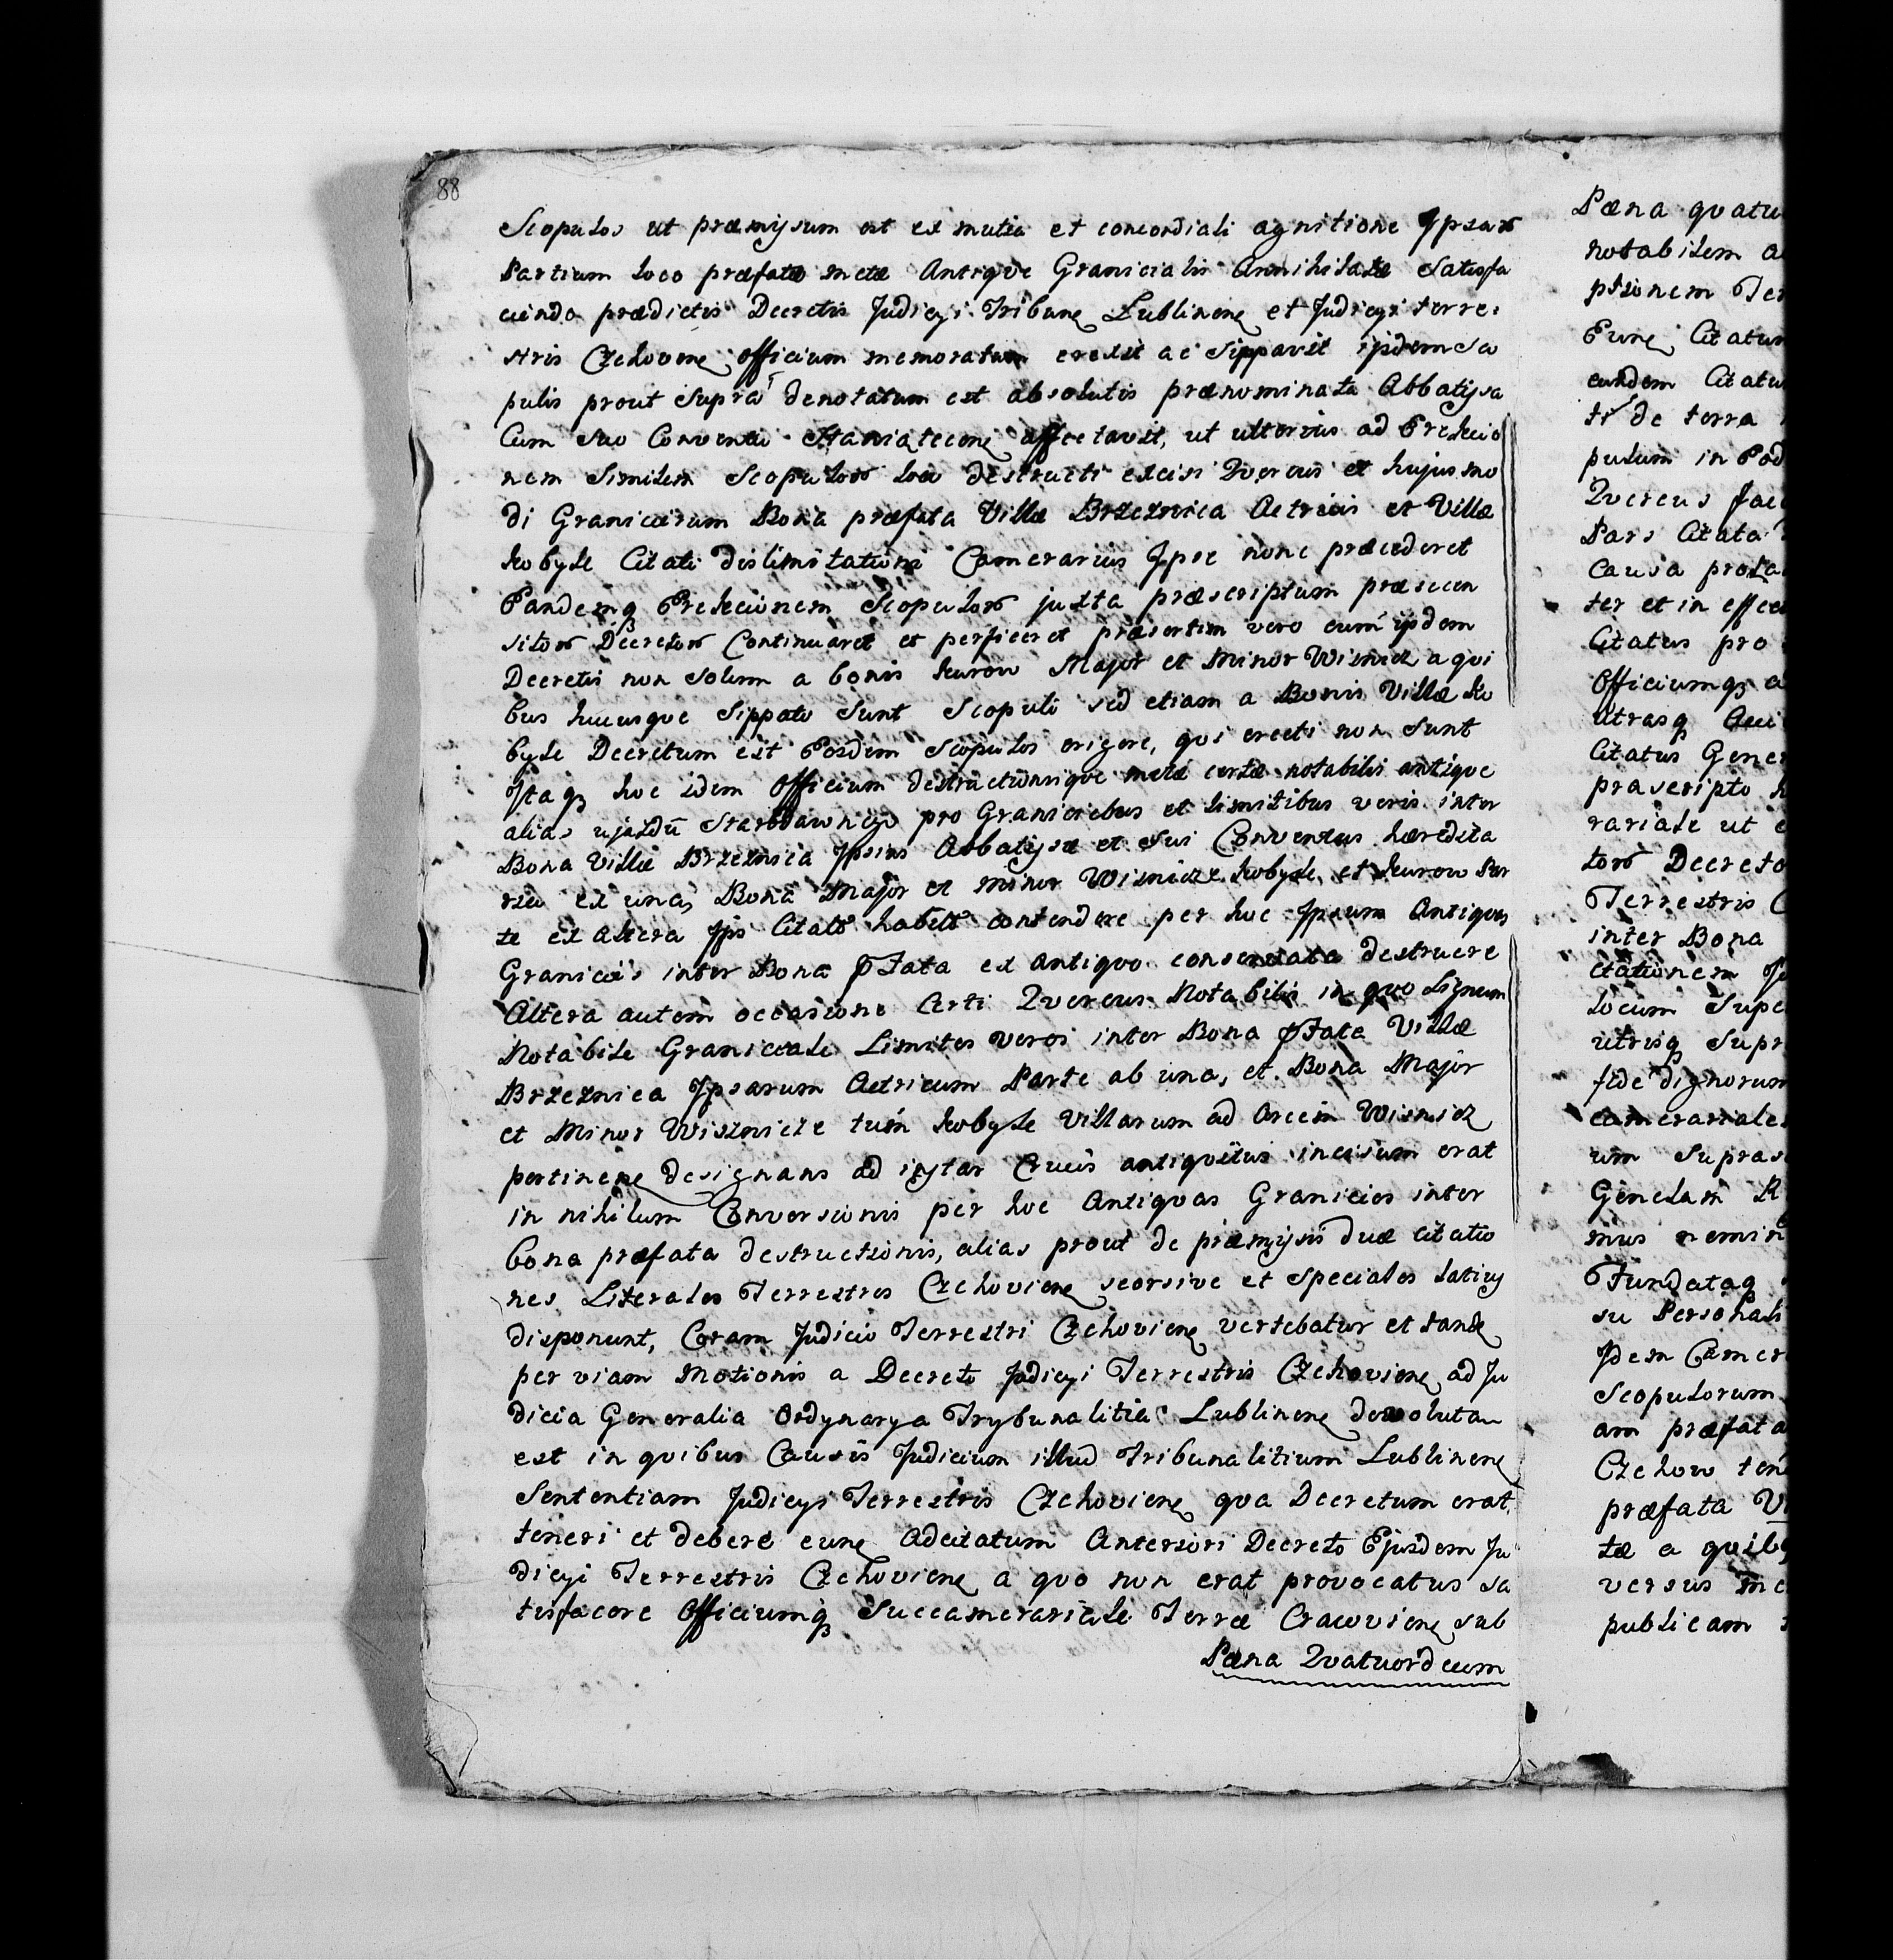 88
Scopulos ut præmysum est ex mutia et concordiali agnitione Ipsar
Partium loco præfatæ metæ Antiqve Granicialis Annihilatæ Satisfa
ciendo prædictis Decretis Judicyi Tribune Lublinene et Judicyi terre
stris Czchoviene officium memoratum erexit ac Sippavit ijsdem Sco
pulis prout Supra denotatum est absolutis prænominata Abbatysa
Cum Suo Conventu Staniatecene affectavit, ut ulterius ad Erectio
nem Similem Scopulor loco destructi excisi Qvercus et hujusmo
di Granicierum Bona præfata Villæ Brzeznica Actricis et Villæ
Kobyle Citati dislimitationi Camerarius Ipse nunc præcederet
Eandemq Erectionem Scopulor juxta præscriptum præsecen
sitor Decretor Continuaret et perficeret præsertim vero cum ijsdem
Decretis non Solum a bonis Kurow Major et Minor Wisnicz a qui
bus hucusqve Sippato Sunt Scopuli sed etiam a Bonis Villæ Ko
byle Decretum est Eosdem Scopulos erigere, qvi erecti non Sunt
Itaq hoc idem Officium destructionisqve metæ certæ notabilis antiqve
alias ujazdu Starodawnego pro Graniciebus et limitibus veris inter
Bona Villæ Brzeznica Ipsius Abbatysæ et Sui Conventus hæredita
ria ex una, Bona Major et Minor Wisnicze Kobyle et Kurow Par
te ex Altera Ips Citato habito contendere per hoc Ipsum Antiqvas
Granicies inter Bona pfata ex antiqvo consensata destruere
Altera autem occasione Certi Qvercus Notabilis in qvo Signum
Notabile Graniceale Limites veros inter Bona pfata Villæ
Brzeznica Ipsarum Actricum Parte ab una, et Bona Major
et Minor Wisznicze tum Kobyle Villarum ad Arcem Wisnicz
pertinene designans ad instar Crucis antiqvitus incisum erat
in nihilum Conversionis per hoc Antiqvas Granicies inter
bona præfata destructionis, alias prout de præmysis duæ citatio
nes Literales Terrestres Czchoviene seorsive et Speciales latius
disponunt, Coram Judicio Terrestri Czchoviene vertebatur et tande
per viam Motionis a Decreto Judicyi Terrestris Czchoviene ad Ju
dicia Generalia Ordynarya Trybunalitia Lublinene devoluta
est in qvibus Causis Judicium illud Tribunalitium Lublinene
Sententiam Judicyi Terrestris Czchoviene qva Decretum erat
teneri et debere eune Adcitatum Anteriori Decreto Ejusdem Ju
dicyi Terrestris Czchoviene a qvo non erat provocatus sa
tisfacere Officiumq Succamerariale Terræ Cracoviene sub
Pæna Qvatuordecim
Pæna qvatu
notabilem a
ptionem Ter
Eune Citatum
eundem Citatu
de terra
pulum in
Qvercus fac
Pars Citata
Causa prola
ter et in effec
Citatus pro
Officiumq a
utrasq
Citatus Gene
præscripto
rariale ut
tor Decreto
Terrestris C
inter Bona
ctationem
locum Supe
utrisq Supr
fide dignorum
camerariale
um Supras
Genelam
mus nemin
Fundataq
su Personali
Idem Camer
Scopulorum
am præfata
Czchow ten
præfata Vi
tæ a qvib
versus me
publicam